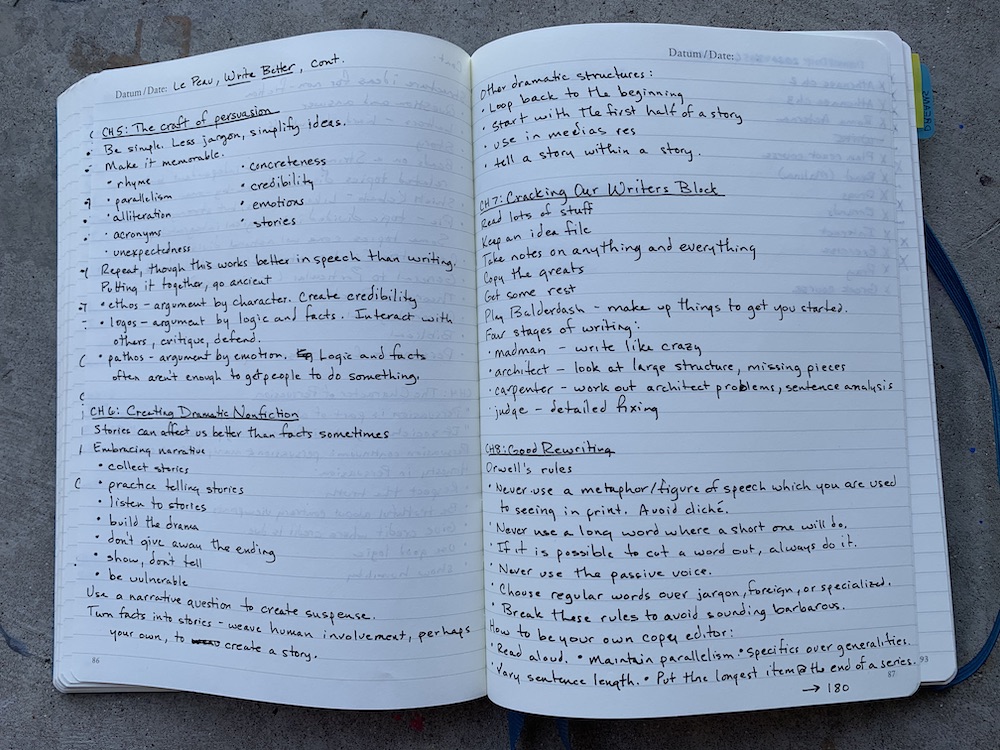 Datum/Date: Le Peau, Write Better, cont.
CH 5: The craft of persuasion
• Be simple. Less jargon, simplify ideas.
• Make it memorable.
• rhyme • concreteness
• parallelism • credibility
• alliteration • emotions
• acronyms • stories
• unexpectedness
Repeat, though this works better in speech than writing.
Putting it together, go ancient
• ethos – argument by character. Create credibility
• logos – argument by logic and facts. Interact with
others, critique, defend.
• pathos – argument by emotion. Logic and facts
often aren't enough to get people to do something.
CH 6: Creating Dramatic Nonfiction
Stories can affect us better than facts sometimes
Embracing narrative
• collect stories
• practice telling stories
• listen to stories
• build the drama
• don't give away the ending
• show, don't tell
• be vulnerable
Use a narrative question to create suspense.
Turn facts into stories – weave human involvement, perhaps
your own, to create a story.
86
Datum/Date:
Other dramatic structures:
• Loop back to the beginning
• Start with the first half of a story
• use in medias res
• tell a story within a story.
CH 7: Cracking Our Writers Block
Read lots of stuff
Keep an idea file
Take notes on anything and everything
Copy the greats
Get some rest
Play Balderdash – make up things to get you started.
Four stages of writing:
• madman – write like crazy
• architect – look at large structure, missing pieces
• carpenter – work out architect problems, sentence analysis
• judge – detailed fixing
CH 8: Good Rewriting
Orwell's rules
• Never use a metaphor/figure of speech which you are used
to seeing in print. Avoid cliché.
• Never use a long word where a short one will do.
• If it is possible to cut a word out, always do it.
• Never use the passive voice.
• Choose regular words over jargon, foreign, or specialized.
• Break these rules to avoid sounding barbarous.
How to be your own copy editor:
• Read aloud. • Maintain parallelism • Specifics over generalities.
• Vary sentence length. • Put the longest item @ the end of a series.
87
→ 180
93